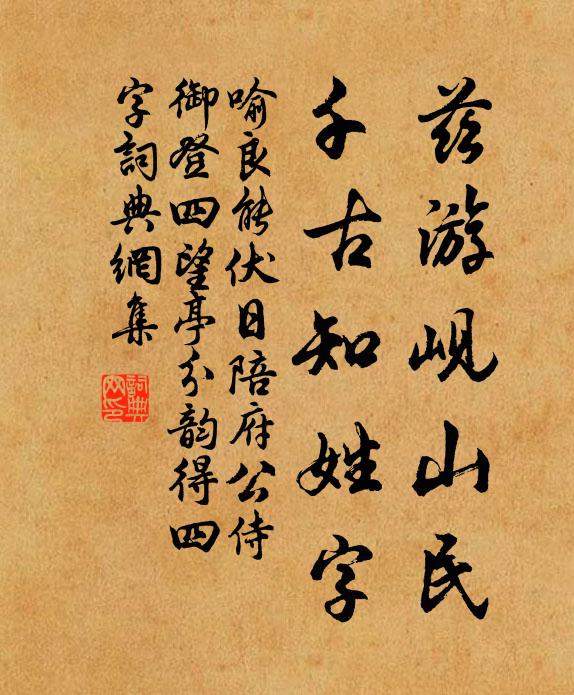 茲游峴山民
千古知姓字
喻良能伏日陪府公侍
御登四望亭分韵得四
字詞典網集
詞典
网印